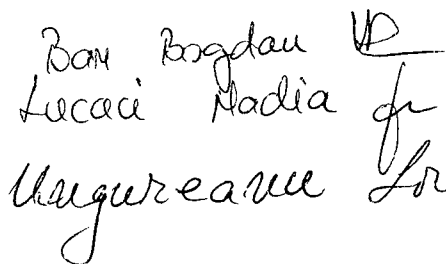 Ban Bogdan
Lucaci Nadia
Ungureanu Lor